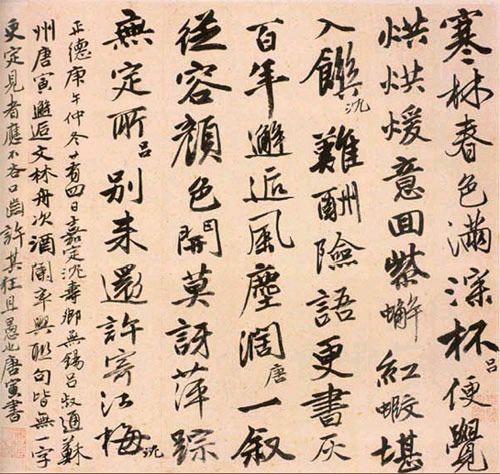 寒林春色滿深杯呂便覺
烘烘煖意回紫蠏紅蝦堪
入饌沈難酬險語更書灰
百年邂逅風塵濶唐一敘
從容顏色開莫訝萍踪
無定所呂別來還許寄江梅沈
正德庚午仲冬廿有四日嘉定沈壽卿無錫呂叔通蘇
州唐寅邂逅文林舟次酒闌率興聯句皆無一字
更定見者應不吝口齒許其狂且愚也唐寅書